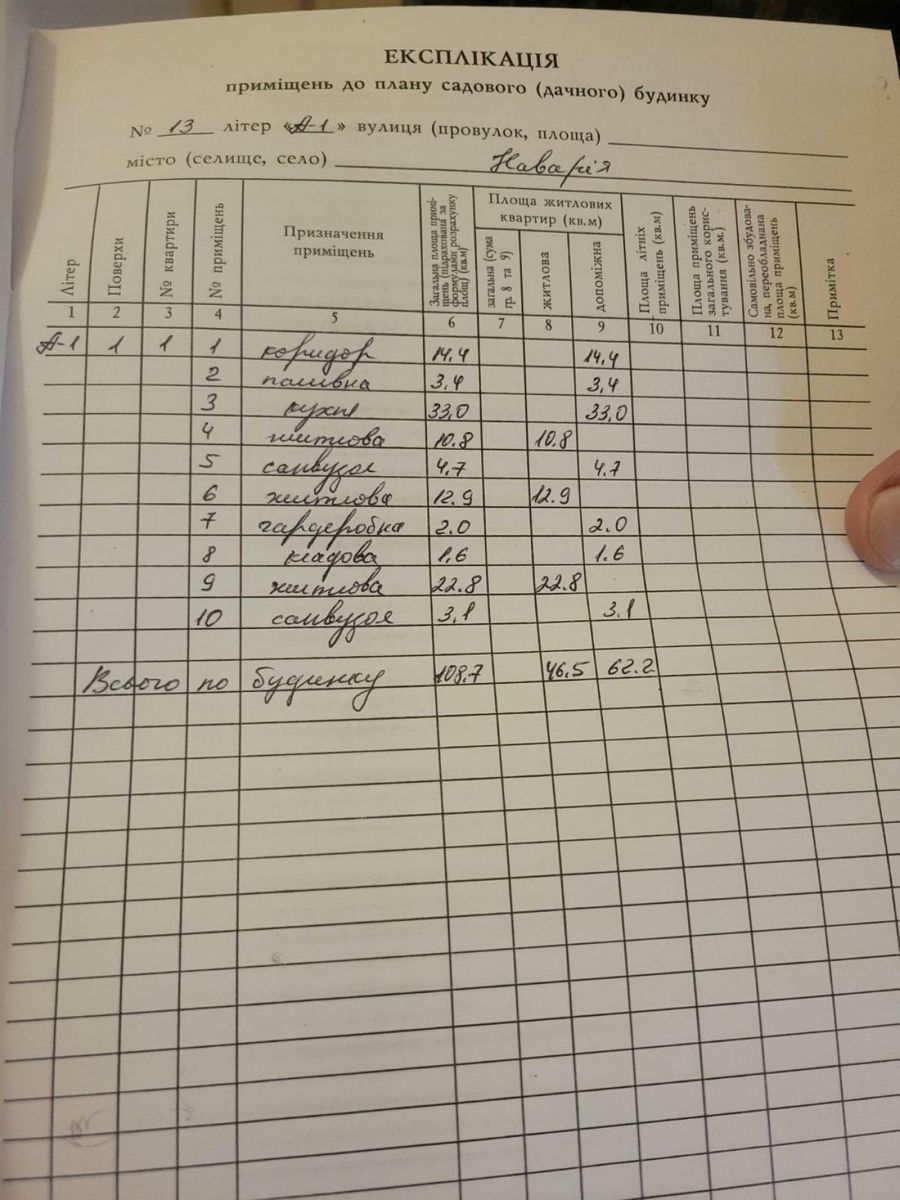 ЕКСПЛІКАЦІЯ
приміщень до плану садового (дачного) будинку
№ 13 літер «А-1» вулиця (провулок, площа)
місто (селище, село) Наварія
Літер Поверхи № квартири № приміщень Призначення приміщень Загальна площа приміщень (підрахована за формулами розрахунку площ) (кв.м) Площа житлових квартир (кв.м) загальна (сума гр. 8 та 9) житлова допоміжна Площа літніх приміщень (кв.м) Площа приміщень загального користування (кв.м.) Самовільно збудована, переобладнана площа приміщень (кв.м) Примітка
1 2 3 4 5 6 7 8 9 10 11 12 13
А-1 1 1 1 коридор 14,4 14,4
2 паливна 3,4 3,4
3 кухня 33,0 33,0
4 житлова 10.8 10.8
5 санвузол 4.7 4.7
6 житлова 12.9 12.9
7 гардеробна 2.0 2.0
8 кладова 1.6 1.6
9 житлова 22.8 22.8
10 санвузол 3,1 3.1
Всього по будинку 108,7 46,5 62.2